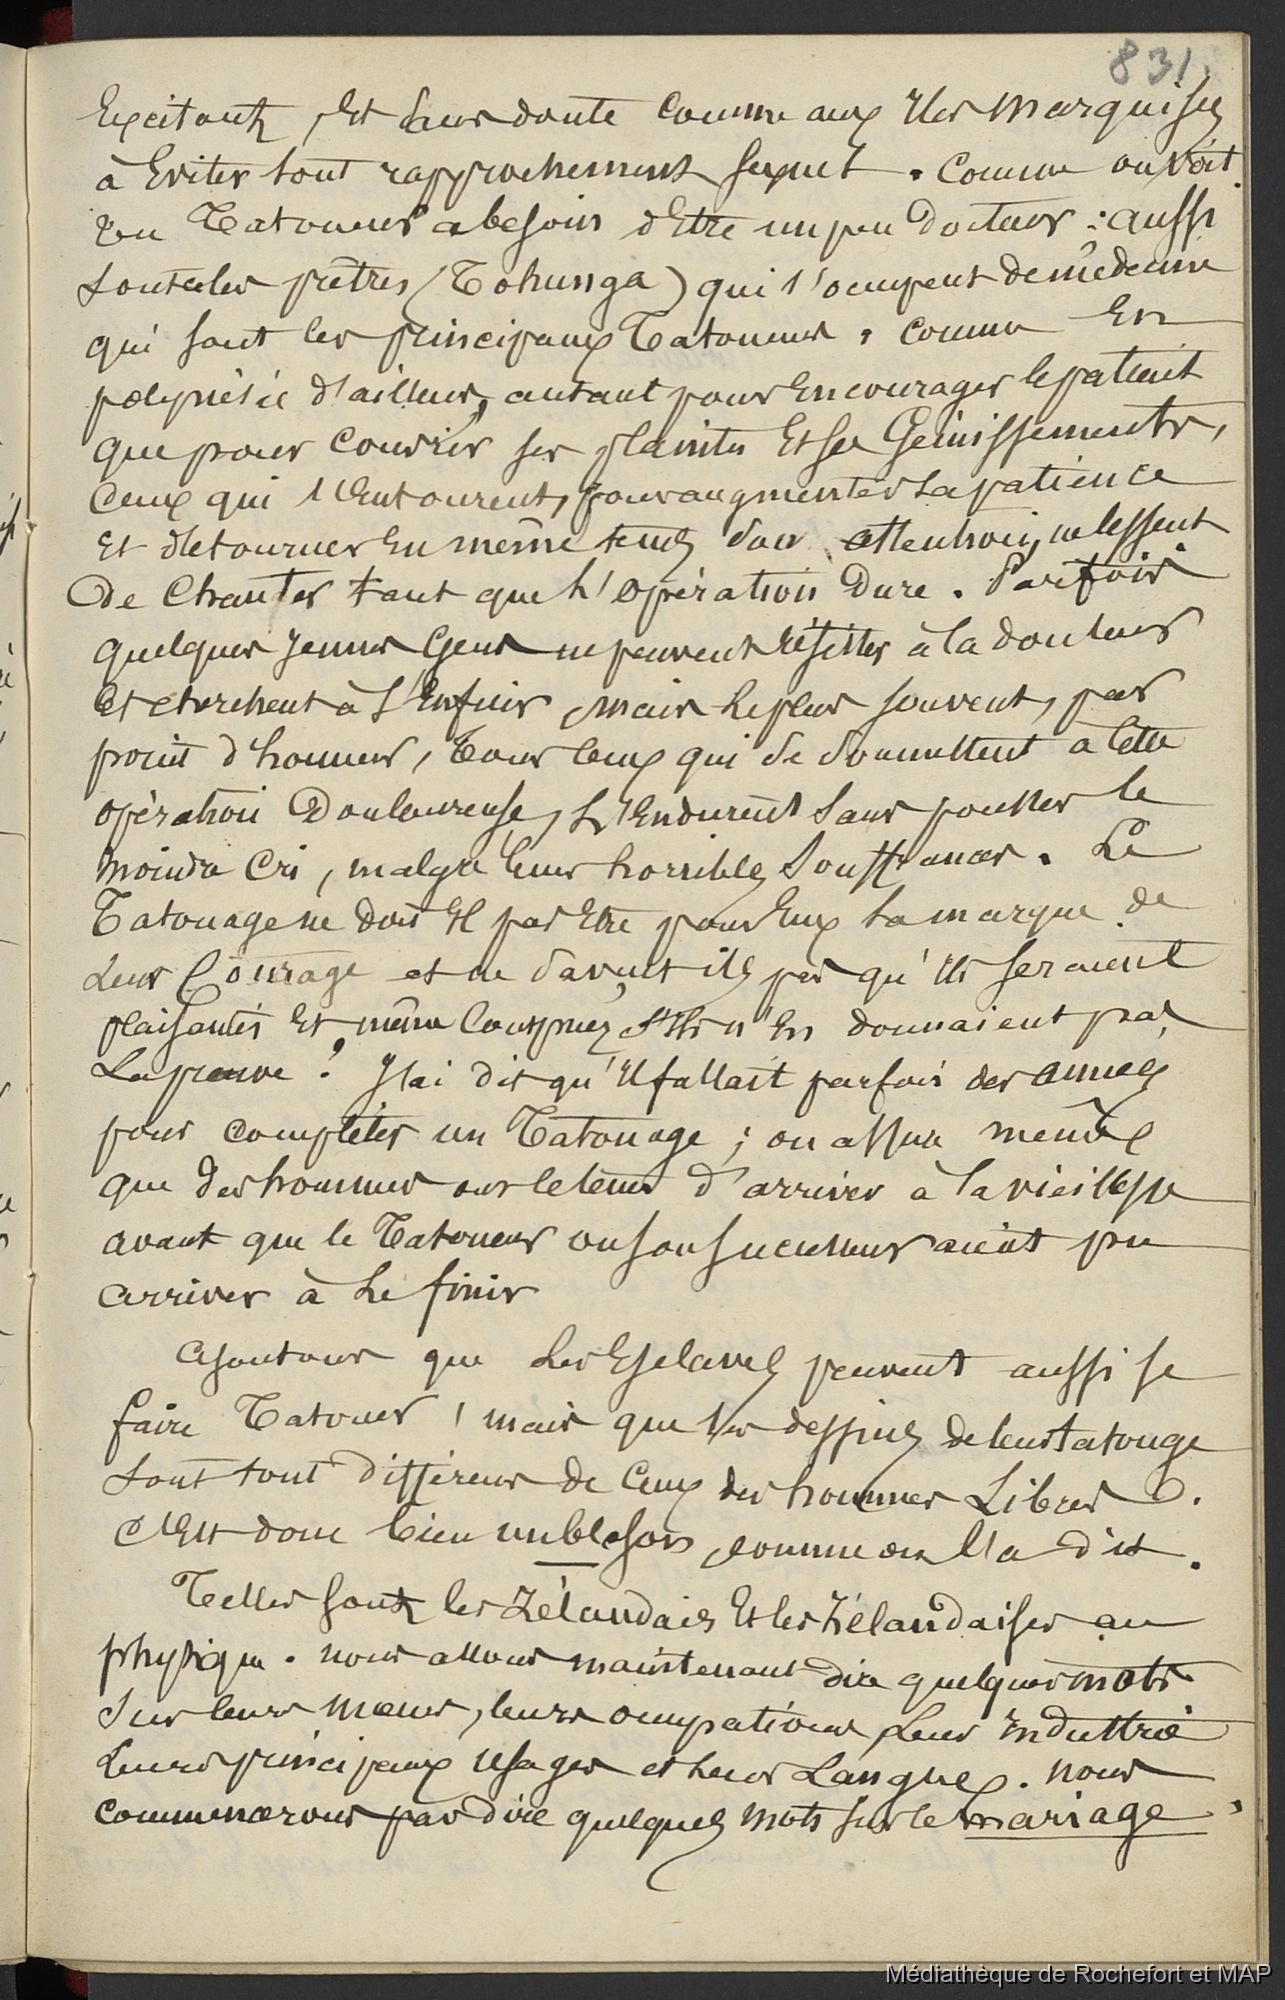 831.
Excitants, Et sans doute comme aux Iles Marquises
à Eviter tout rapprochement sexuel. Comme on voit
un Tatoueur a besoin d'Etre un peu Docteur : aussi
sont-ce les prêtres (Tohunga) qui s'occupent de médecine
qui sont les principaux Tatoueurs. Comme En
polynésie d'ailleurs, autant pour Encourager le patient
que pour couvrir ses plaintes Et ses Gémissements,
ceux qui l'Entourent, pour augmenter sa patience
Et détourner En même temps son attention, ne cessent
De Chanter tant que l'opération Dure. Parfois
quelques jeunes Gens ne peuvent résister à la douleur
Et cherchent à s'Enfuir, mais le plus souvent, par
point d'honneur, tous ceux qui se soumettent à cette
opération Douloureuse, l'Endurent sans pousser le
moindre cri, malgré leurs horribles souffrances. Le
Tatouage ne doit Il pas Etre pour Eux la marque de
leur Courage et ne savent ils pas qu'Ils seraient
plaisantés Et même conspués s'Ils n'En donnaient pas
la preuve ? J'ai dit qu'Il fallait parfois des années
pour compléter un Tatouage ; on assure même
que des hommes ont le temps d'arriver à la vieillesse
avant que le Tatoueur ou son successeur aient pu
arriver à le finir
Ajoutons que les Esclaves peuvent aussi se
faire Tatouer, mais que les dessins de leur tatouage
sont tout différents de ceux des hommes Libres.
C'Est donc bien un blason, comme on l'a dit.
Telles sont les Zélandais Et les Zélandaises au
physique. nous allons maintenant dire quelques mots
sur leurs mœurs, leurs occupations, leur Industrie
leurs principaux usages et leur Langue. nous
commencerons par dire quelques mots sur le mariage.
Médiathèque de Rochefort et MAP